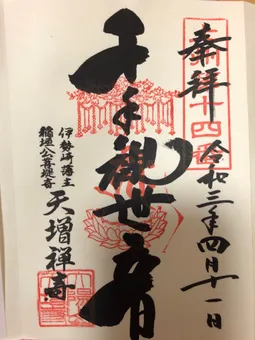 奉拝
令和三年四月十一日
千手観世音
伊勢崎藩主
稲垣公菩提寺
天増禅寺